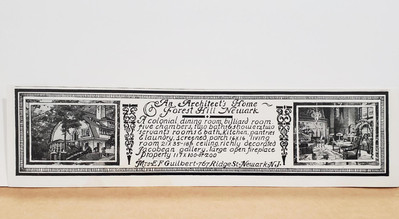 An Architect's Home
Forest Hill Newark
A colonial dining room, billiard room
five chambers, two baths & showers, two
servants rooms & bath, kitchen, pantries
& laundry, screened porch 16 x 16, living
room 21 x 35 - 18 ft ceiling, richly decorated
Jacobean gallery, large open fireplace
Property 117 x 100 + 200
Mrs. E. F. Guilbert - 767 Ridge St. - Newark N.J.